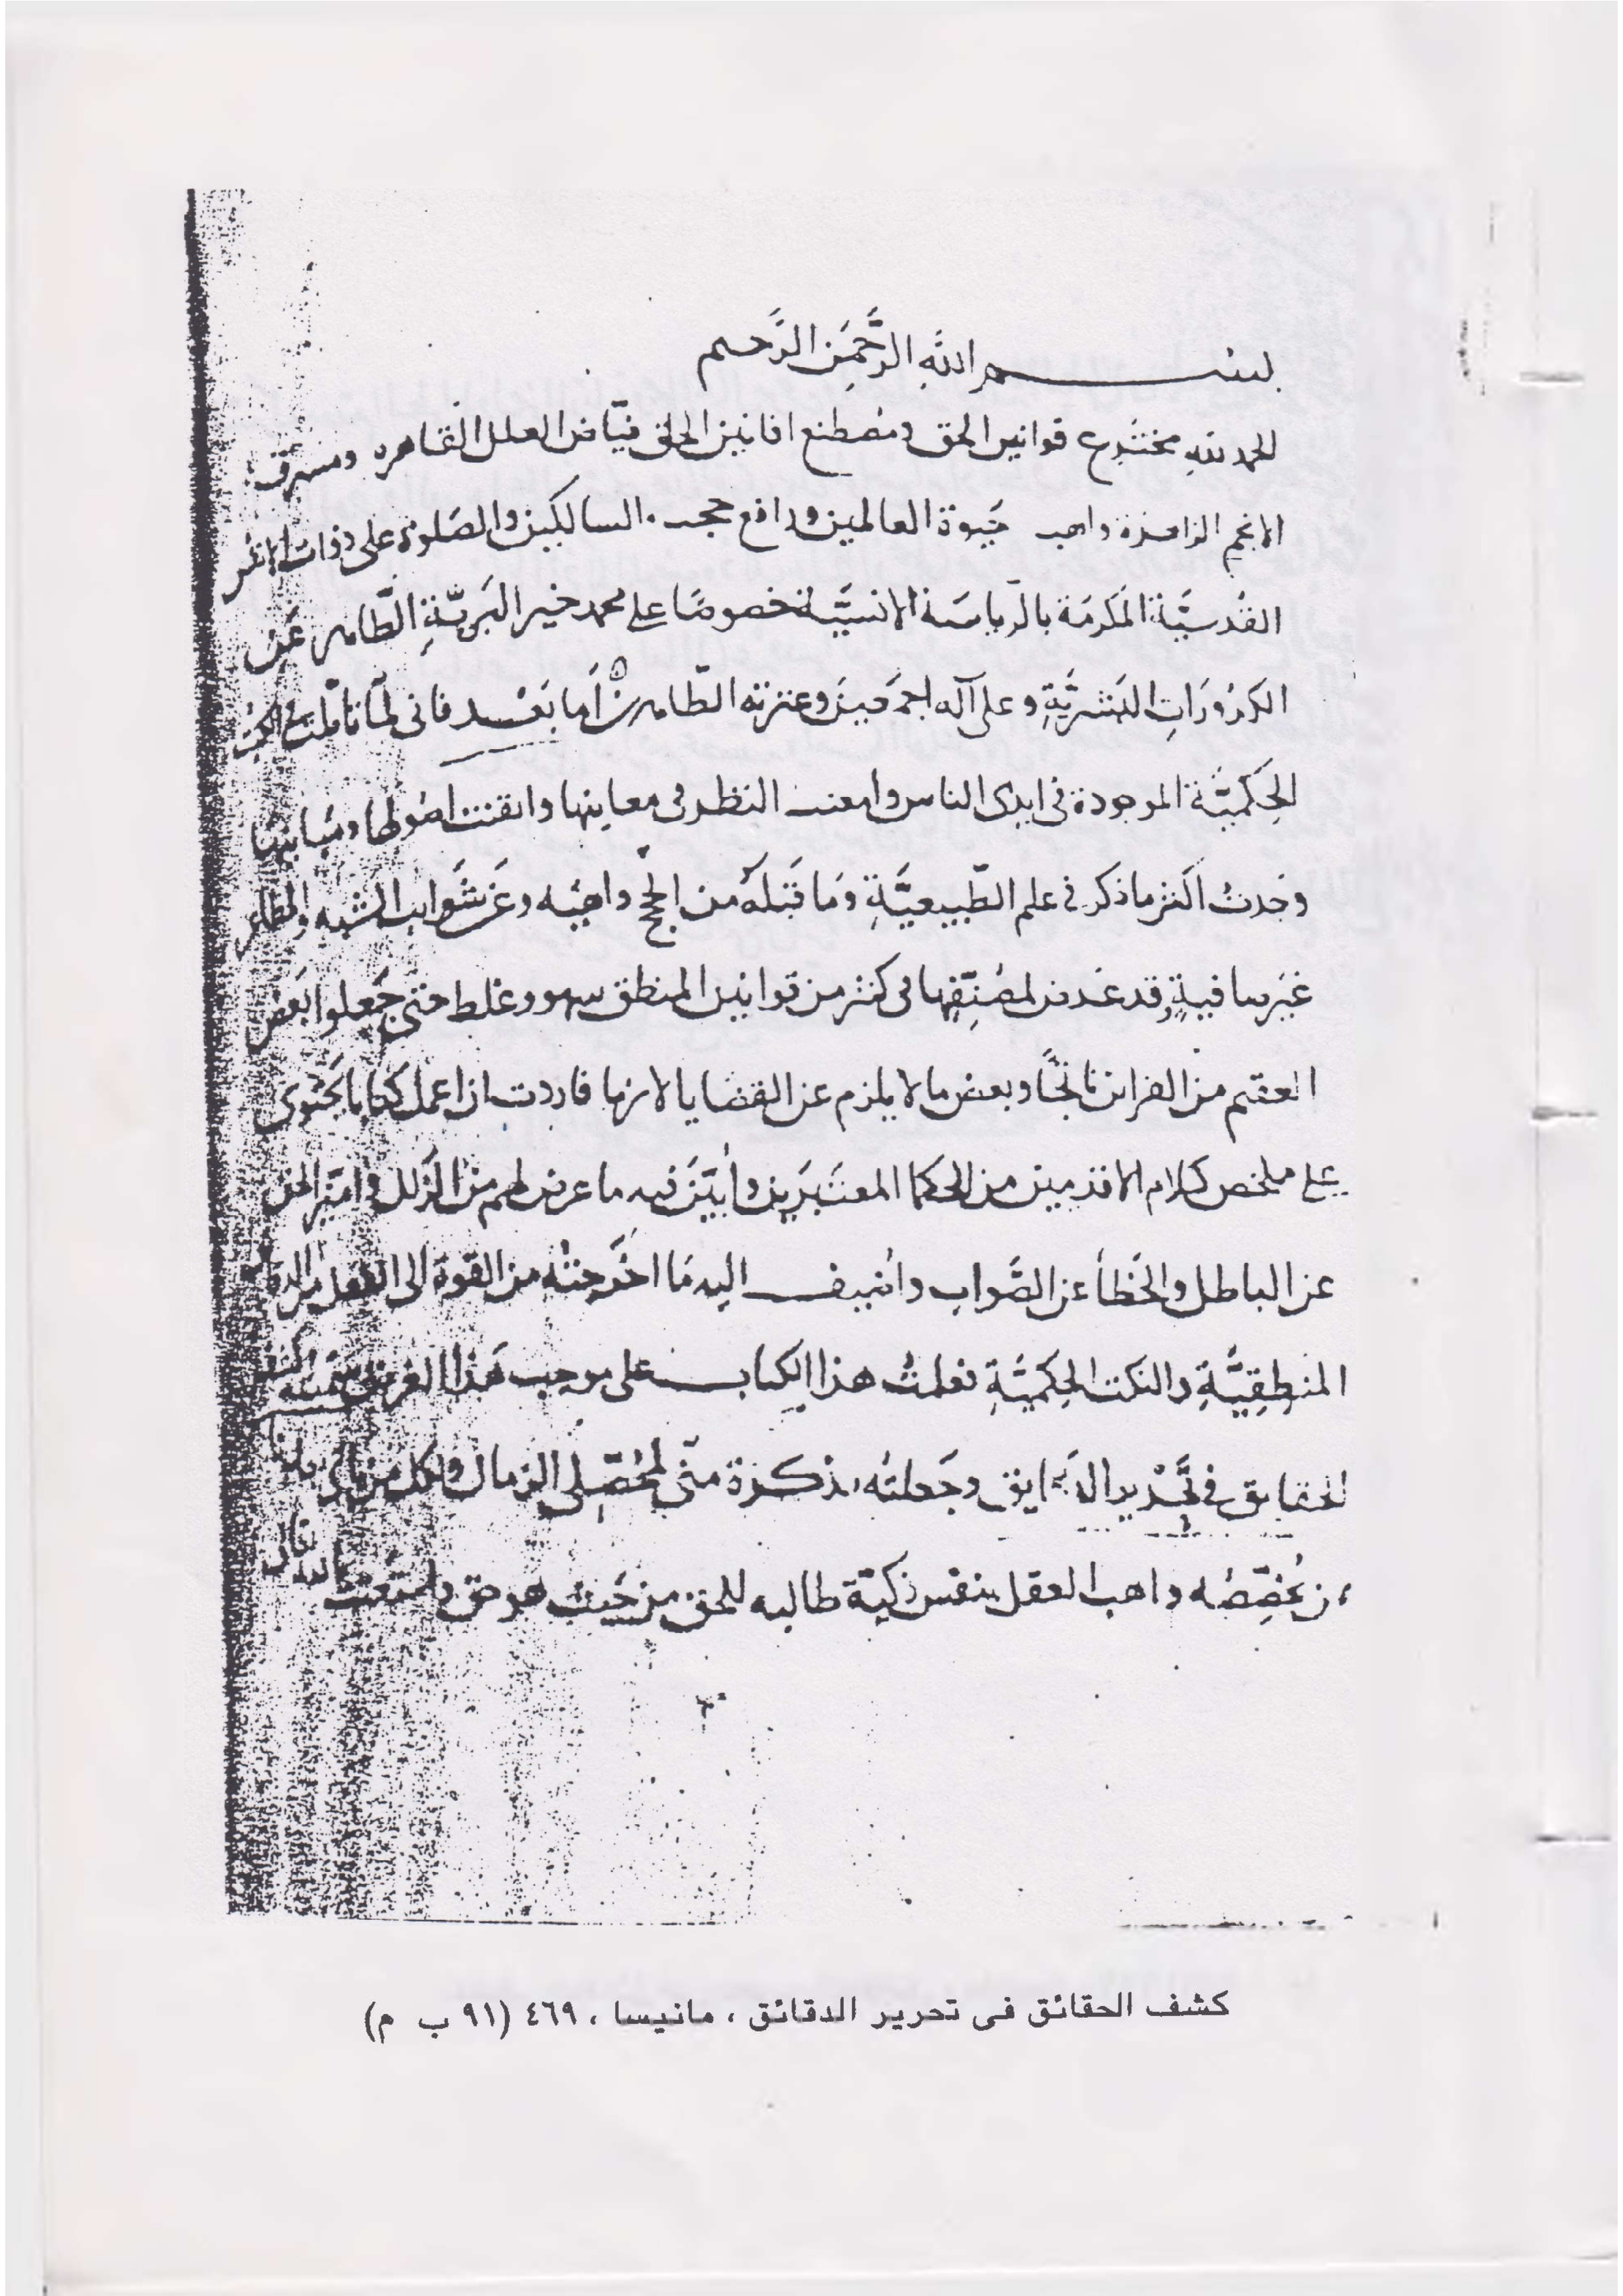 بسم الله الرَّحْمَنِ الرَّحيم
الحمد للهِ مخترع قوانين الحق ومُصطنع افانين الخلق فيّاض العلل القاهره ومشرق
الانجم الزاهرة واهب حَيوة العالمين ورافع حجب السالكين والصَلوة على ذوات الانفس
القُدسيَّة المكرمَة بالرياسَة الانسيَّة خصوصًا على محمد خير البَريّةِ الطّاهر عَن
الكدُورَاتِ البَشريَّةِ وعلى آله اجمَعينَ وعترته الطّاهرين أمَا بَعْد فانى لمّا تأملت الكتب
الحِكَميَّة الموجودة فى ايدى الناس وامعنت النظر فى معانيها واتقنت اصُولها ومبانيها
وجَدتُ اكثر ما ذكر فى علم الطّبيعيَّةِ ومَا قَبَلهُ من الحجج واهيَه وعَن شَوايب الشبه
غَير صافيةٍ وقد عَرض لمصَنِّفيها فى كثر من قوانين المنطق سهو وغلط حتى جَعلوا بَعض
العقم من القراين ناتجًا وبعض ما لا يلزم عن القضايا لازما فاردت ان اعمل كتابا يَحتوى
على ملخص كلام الاقدمين من الحكما المعتَبَرين وأبَيّن فيه ما عرض لهم من الزَّلل واميّز الحق
عن الباطل والخَطأ عن الصَّواب وأضيف اليه مَا اخرَجتُه من القوة الى الفعل من
المنطِقِيَّةِ والنكت الحِكميَّةِ فعلمتُ هذا الكتاب على موجب هَذا الغرض
الحقايق فى تحْرير الدقايق وجَعلتُه تذكرة منّى لمحُصّلى الزمان ولكل من
يُخصِّصُه واهب العقل بنفس زكيّة طالبه للحق من حَيث هو حق واستَعنت بالله
كشف الحقائق فى تحرير الدقائق ، مانيسا ، ٤٦٩ (٩١ ب م)